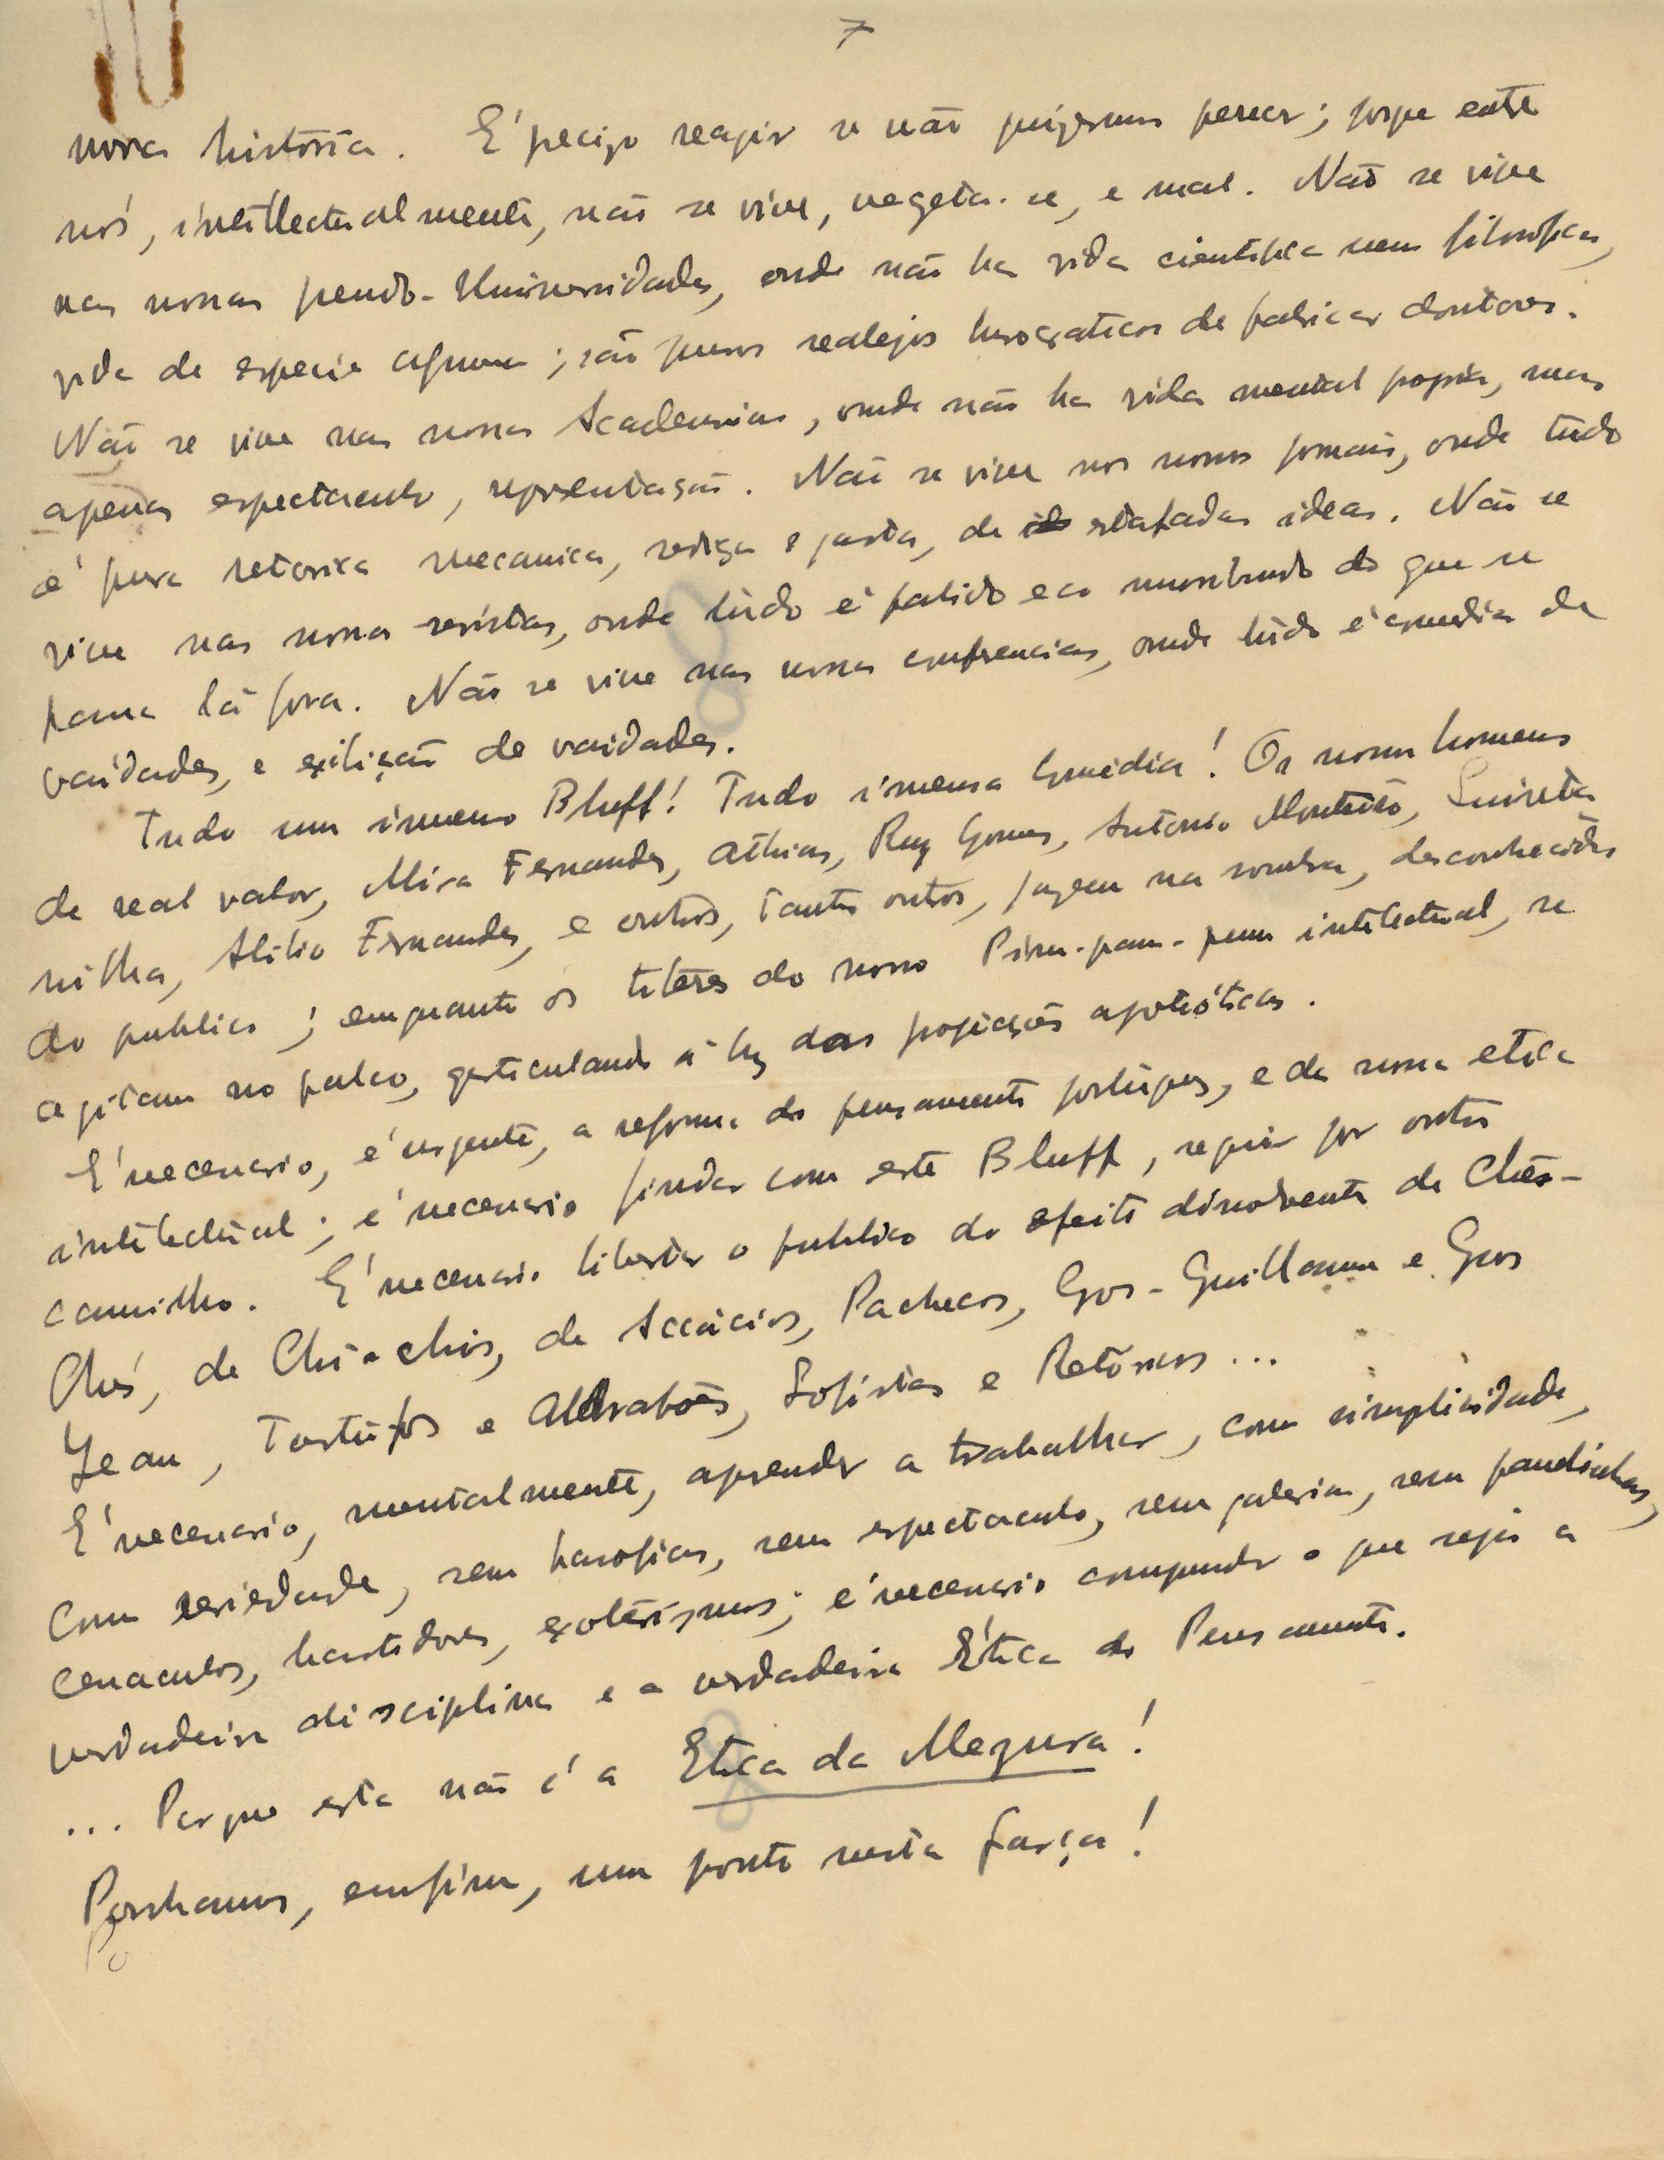 7
nossa história. É preciso reagir se não quizermos perecer; porque entre
nós, intellectualmente, não se vive, vegeta-se, e mal. Não se vive
nas nossas pseudo-Universidades, onde não ha vida cientifica nem filosofica,
vida de especie alguma; são puros realejos burocraticos de fabricar doutores.
Não se vive nas nossas Academias, onde não ha vida mental propria, mas
apenas espectaculo, representação. Não se vive nos nossos jornais, onde tudo
é pura retorica mecanica, rediça e gasta, de estafadas ideas. Não se
vive nas nossas revistas, onde tudo é palido eco do que se
passa lá fora. Não se vive nas nossas conferencias, onde tudo é comedia de
vaidades, e exibição de vaidades.
Tudo um imenso Bluff! Tudo imensa Comédia! Os nossos homens
de real valor, Mira Fernandes, Athias, Ruy Gomes, Antonio Monteiro,
nilha, Abilio Fernandes, e outros, tantos outros, jazem na sombra, desconhecidos
do publico; emquanto os titeres do nosso Pim-pam-pum intelectual, se
agitam no palco, gesticulando á luz das projecções apoteóticas.
É necessario, é urgente, a reforma do pensamento português, e da nossa etica
intelectual; é necessario findar com este Bluff, seguir por outro
caminho. É necessario libertar o publico do efeito dissolvente de Chés-
Chés, de Chi-chis, de Accácios, Pachecos, Gros-Guillaume e Gros
Jean, Tartufos e Aldrabões, Sofistas e Retóricos...
É necessario, mentalmente, aprender a trabalhar, com simplicidade,
com seriedade, sem basofias, sem espectaculo, sem galerias, sem pandilhas,
cenaculos, bastidores, exoterismos; é necessario compreender o que seja a
verdadeira disciplina e a verdadeira Ética do Pensamento.
... Porque esta não é a Etica da Mezura!
Ponhamos, emfim, um ponto nesta farça!